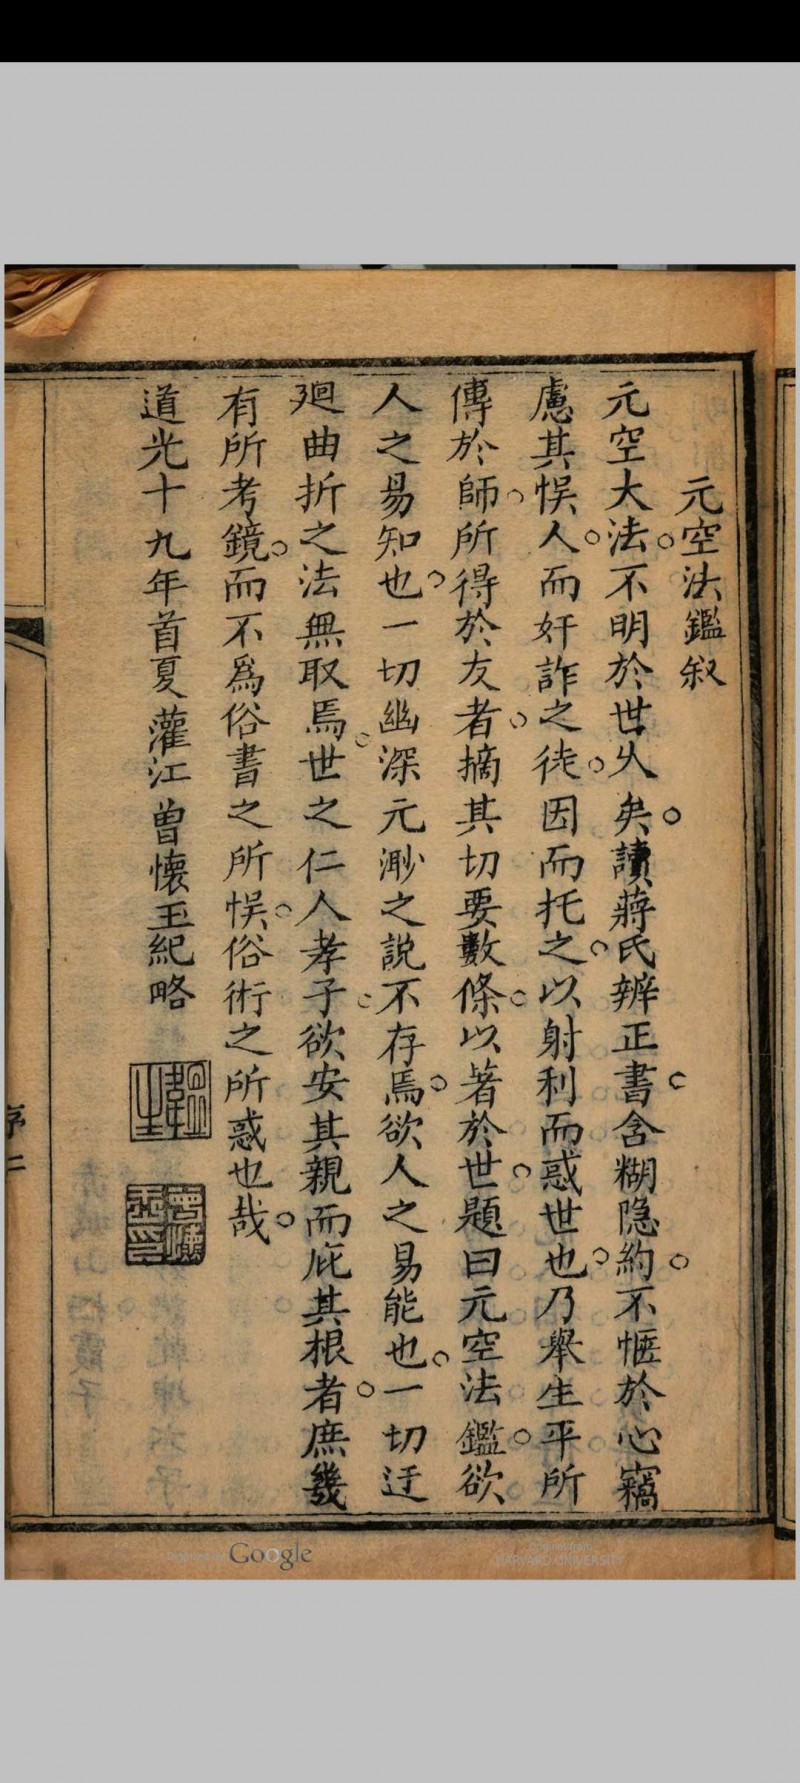 元空法鑑叙
元空大法不明於世乆矣讀蔣氏辨正書含糊隐約不愜於心竊
慮其悞人而奸詐之徒因而托之以射利而惑世也乃舉生平所
傳於師所得於友者摘其切要數條以著於世題曰元空法鑑欲
人之易知也一切幽深元渺之說不存焉欲人之易能也一切迂
廻曲折之法無取焉世之仁人孝子欲安其親而庇其根者庶幾
有所考鏡而不爲俗書之所悞俗術之所惑也哉
道光十九年首夏灌江曾懷玉紀略
序
二
Google
Original from
HARVARD UNIVERSITY